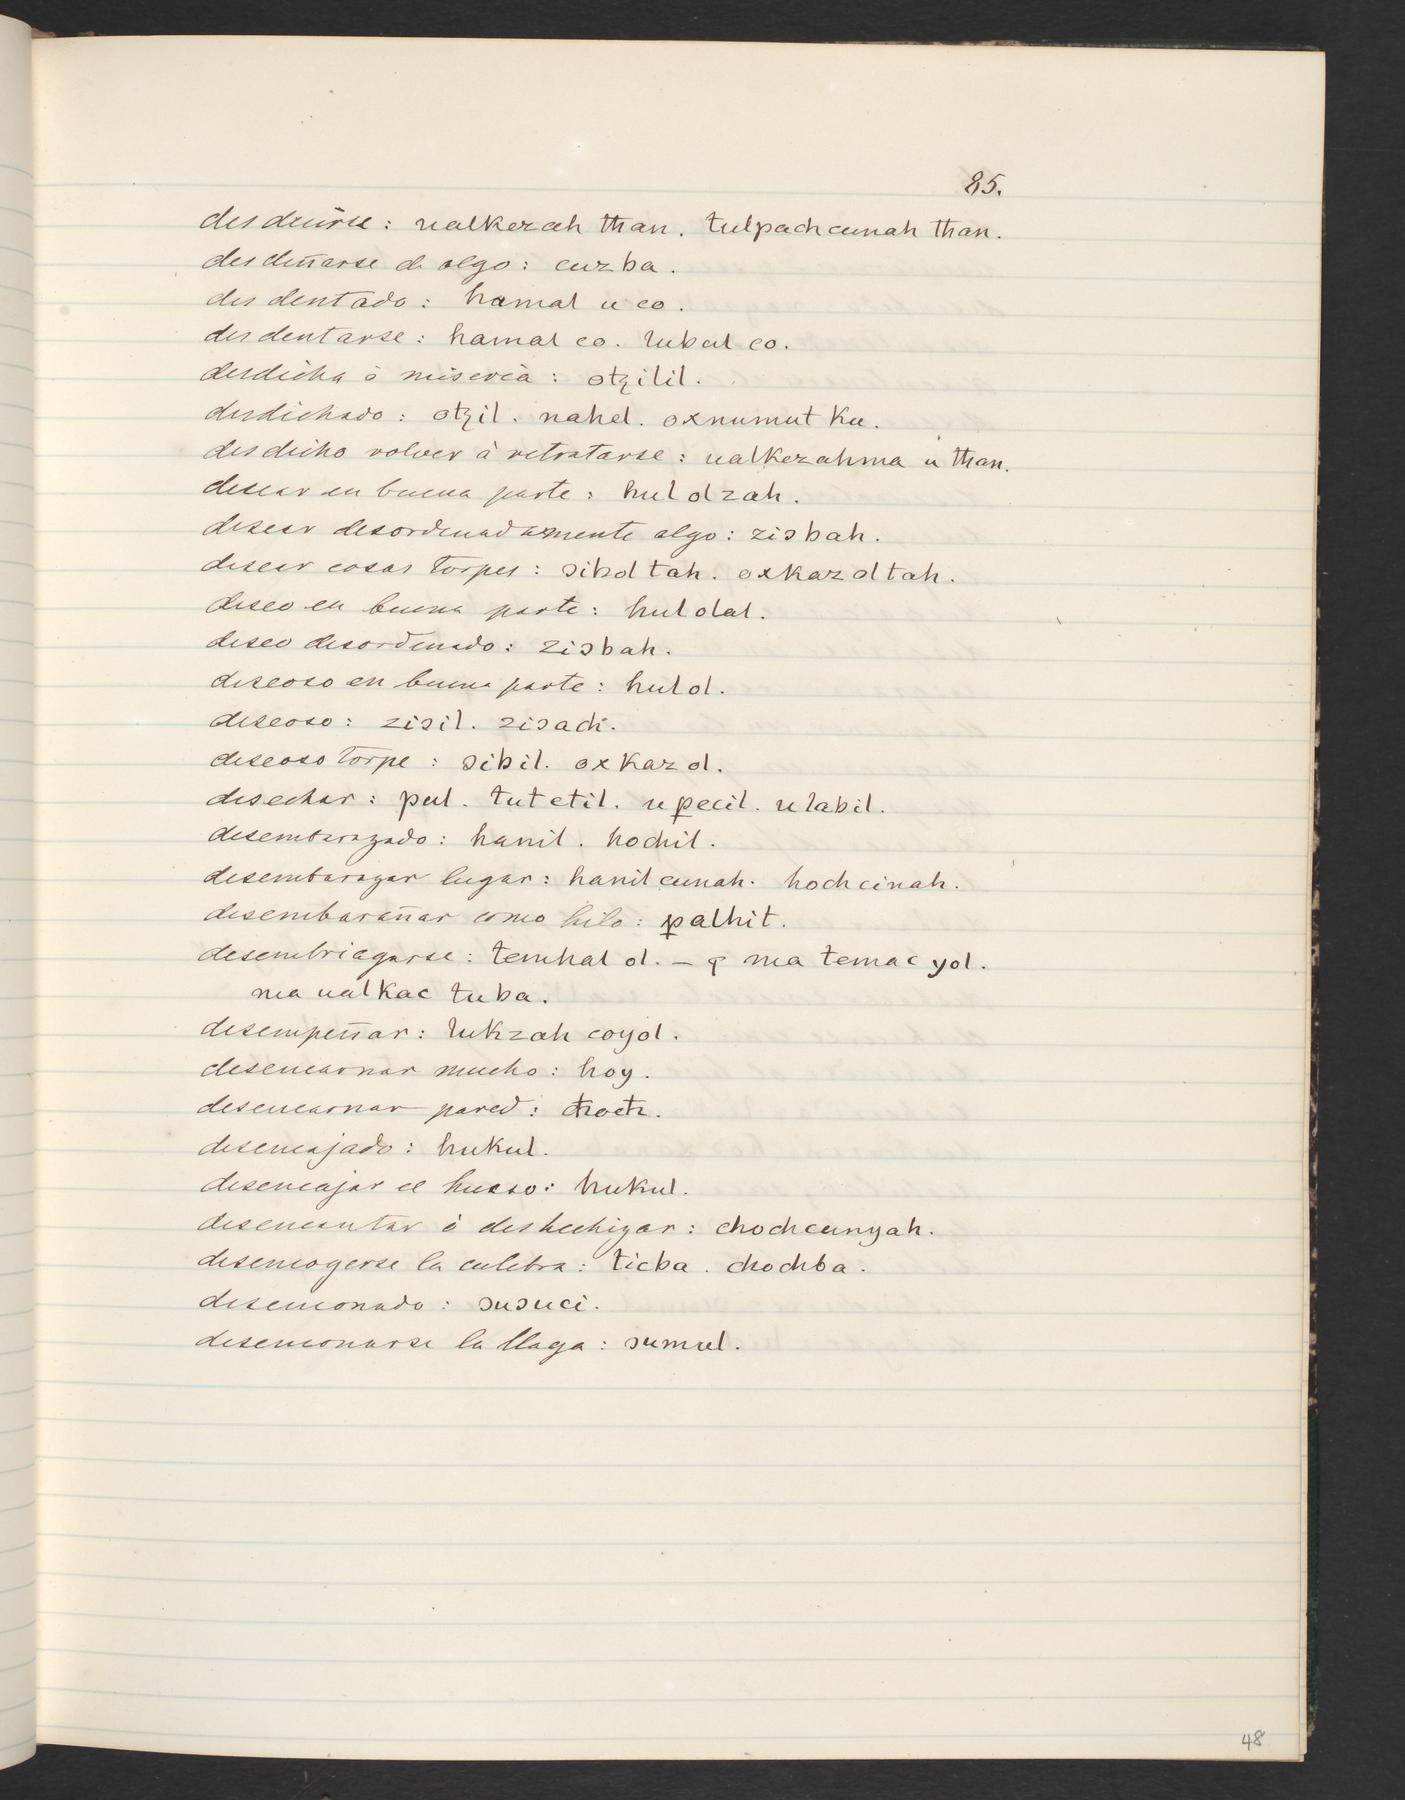 85.
desdecirse: ualkezah than. tulpachcunah than.
desdeñarse de algo: cuzba.
desdentado: hamal u co.
desdentarse: hamal co. lubul co.
desdicha ò miseria: otzilil.
desdichado: otzil. nahel. oxnumut ku.
desdicho volver à retratarse: ualkezahma u than.
desear en buena parte: hul olzah.
desear desordenadamente algo: ziɔbah.
desear cosas torpes: ɔibol tah. oxkaz ol tah.
deseo en buena parte: hul olal.
deseo desordenado: ziɔbah.
deseoso en buena parte: hul ol.
deseoso: ziɔil. ziɔach.
deseoso torpe: ɔibil. oxkaz ol.
desechar: pul. tutetil. u ꝑecil. u labil.
desembarazado: hanil. hochil.
desembarazar lugar: hanilcunah. hochcinah.
desembarañar como hilo: ꝑalhit.
desembriagarse: temhal ol. – q ma temac yol.
ma ualkac tuba.
desempeñar: lukzah coyol.
desencarnar mucho: hoy.
desencarnar pared: cħocħ.
desencajado: hukul.
desencajar el hueso: hukul.
desencantar ò deshechizar: chochcunyah.
desencogerse la culebra: ticba. chochba.
desenconado: ɔuɔuci.
desenconarse la llaga: ɔumul.
48